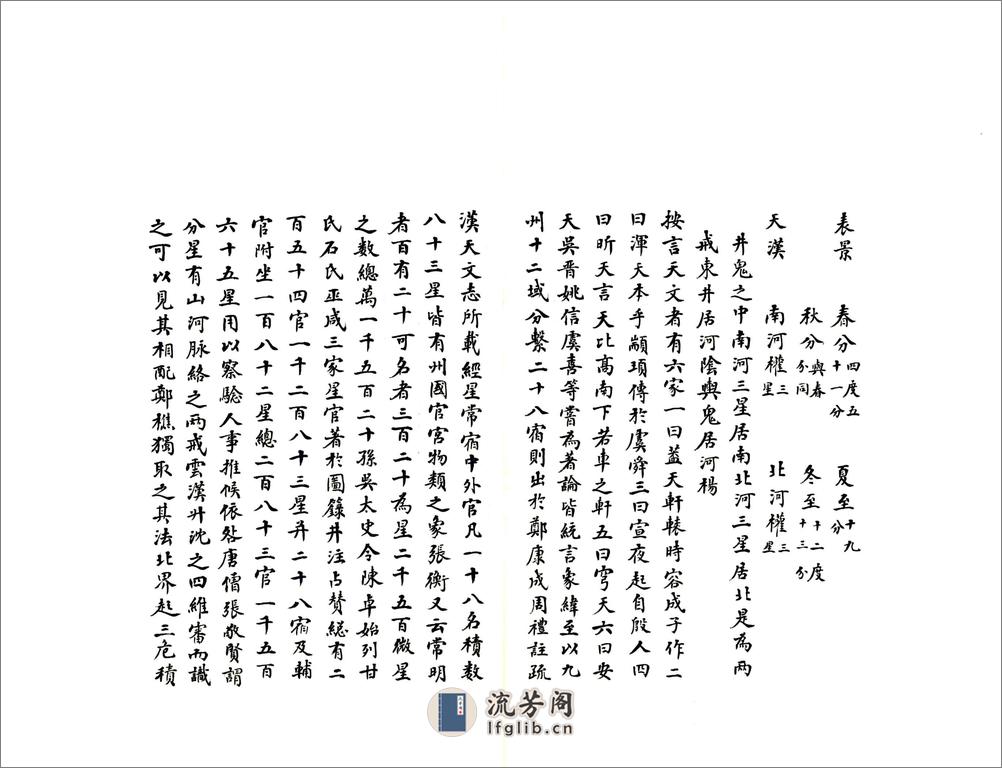 表景　春分四度五十一分　夏至十九分
秋分與春分同　冬至十二度十三分
天漢　南河權三星　北河權三星
井鬼之中南河三星居南北河三星居北是為兩
戒東井居河陰輿鬼居河楊
按言天文者有六家一曰蓋天軒轅時容成子作二
曰渾天本乎顓頊傳於虞舜三曰宣夜起自殷人四
曰昕天言天比高南下若車之軒五曰穹天六曰安
天吳晋姚信虞喜等嘗為著論皆統言象緯至以九
州十二域分繫二十八宿則出於鄭康成周禮註疏
漢天文志所載經星常宿中外官凡一十八名積数
八十三星皆有州國官宮物類之象張衡又云常明
者百有二十可名者三百二十為星二千五百微星
之数總萬一千五百二十孫吳太史令陳卓始列甘
氏石氏巫咸三家星官著於圖籙并注占贊総有二
百五十四官一千二百八十三星并二十八宿及輔
官附坐一百八十二星總二百八十三官一千五百
六十五星用以察驗人事推候依咎唐僧張敬賢謂
分星有山河脉絡之两戒雲漢升沈之四維審而識
之可以見其相配鄭樵獨取之其法北界起三危積
流芳阁
lfglib.cn